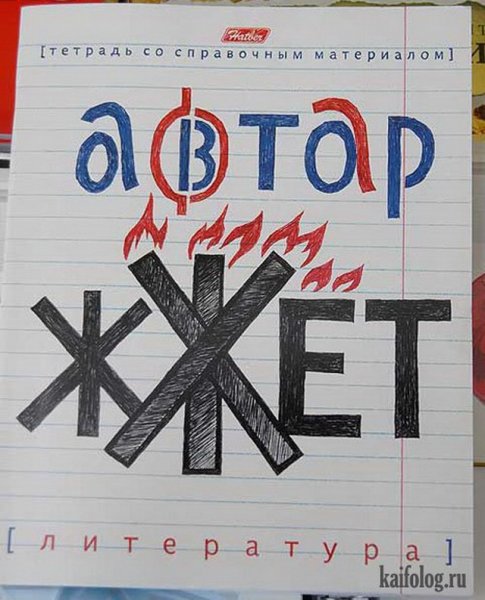 Hatber
[тетрадь со справочным материалом]
афтар
жЖЁТ
[литература]
kaifolog.ru